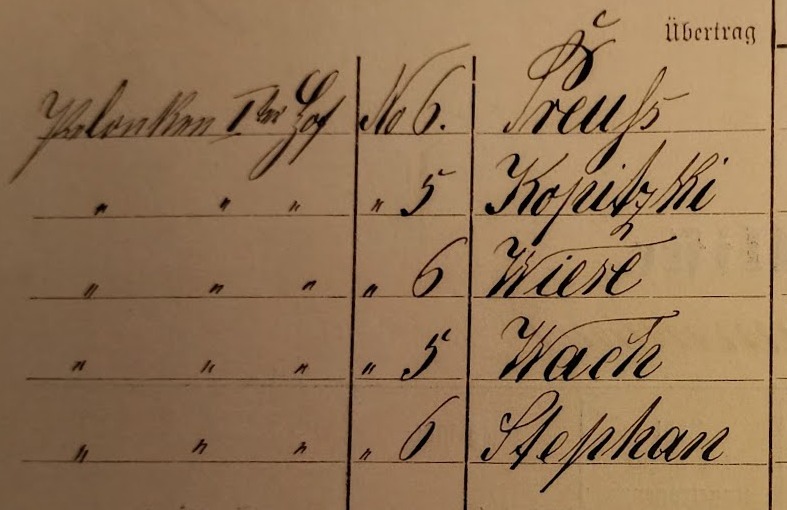 Übertrag
Polonken Iter Hof No 6. Preuß
" " " " 5 Kopitzki
" " " " 6 Wiese
" " " " 5 Wach
" " " " 6 Stephan